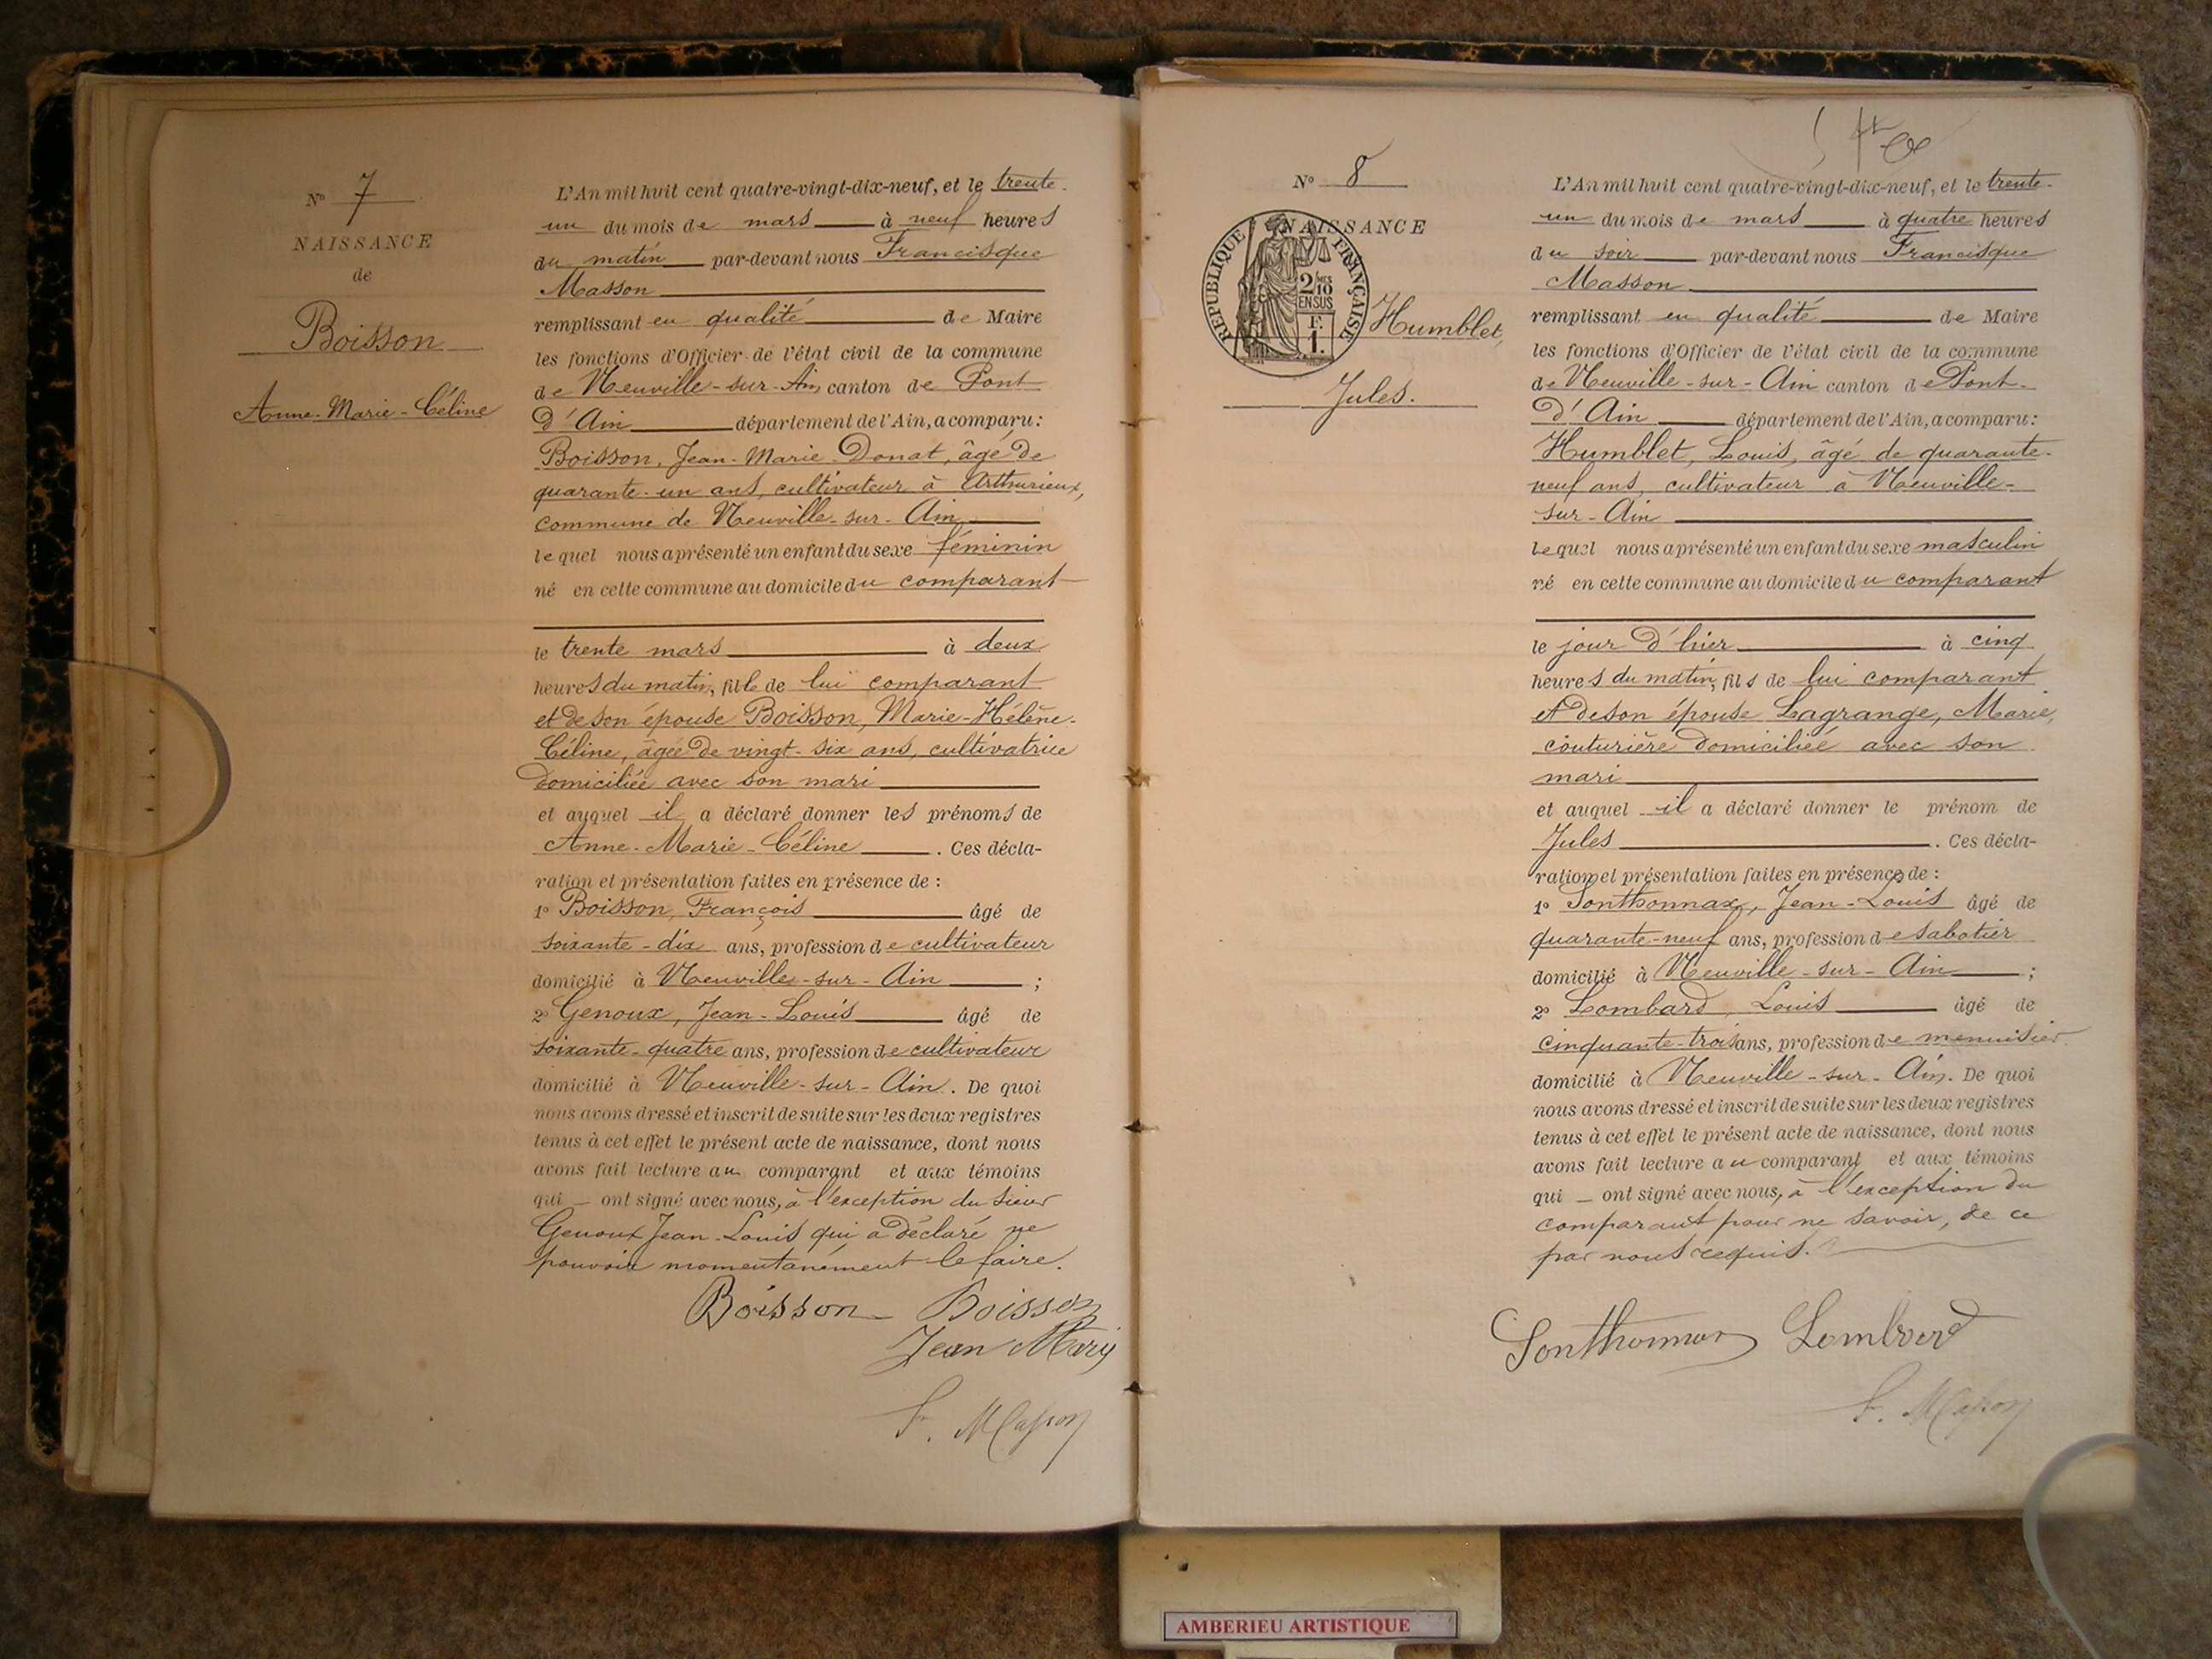 N° 7
NAISSANCE
de
Boisson
Anne-Marie-Céline
L'An mil huit cent quatre-vingt-dix-neuf, et le trente-
un du mois de mars à neuf heures
du matin par-devant nous Francisque
Masson
remplissant en qualité de Maire
les fonctions d'Officier de l'état civil de la commune
de Neuville-sur-Ain canton de Pont
d'Ain département de l'Ain, a comparu :
Boisson, Jean-Marie Donat, âgé de
quarante-un ans, cultivateur à Arthurieux,
commune de Neuville-sur-Ain
lequel nous a présenté un enfant du sexe féminin
né en cette commune au domicile du comparant
le trente mars à deux
heures du matin, fille de lui comparant
et de son épouse Boisson, Marie-Hélène-
Céline, âgée de vingt-six ans, cultivatrice
domiciliée avec son mari
et auquel il a déclaré donner les prénoms de
Anne-Marie-Céline. Ces décla-
ration et présentation faites en présence de :
1° Boisson, François âgé de
soixante-dix ans, profession de cultivateur
domicilié à Neuville-sur-Ain ;
2° Genoux, Jean-Louis âgé de
soixante-quatre ans, profession de cultivateur
domicilié à Neuville-sur-Ain. De quoi
nous avons dressé et inscrit de suite sur les deux registres
tenus à cet effet le présent acte de naissance, dont nous
avons fait lecture au comparant et aux témoins
qui ont signé avec nous, à l'exception du sieur
Genoux Jean-Louis qui a déclaré ne
pouvoir momentanément le faire.
Boisson Boisson
Jean Marie
F. Masson
N° 8
NAISSANCE
RÉPUBLIQUE FRANÇAISE
2/10
EN SUS
F.
1.
Humblet,
Jules.
L'An mil huit cent quatre-vingt-dix-neuf, et le trente-
un du mois de mars à quatre heures
du soir par-devant nous Francisque
Masson
remplissant en qualité de Maire
les fonctions d'Officier de l'état civil de la commune
de Neuville-sur-Ain canton de Pont-
d'Ain département de l'Ain, a comparu :
Humblet, Louis, âgé de quarante-
neuf ans, cultivateur à Neuville-
sur-Ain
lequel nous a présenté un enfant du sexe masculin
né en cette commune au domicile du comparant
le jour d'hier à cinq
heures du matin, fils de lui comparant
et de son épouse Lagrange, Marie,
couturière domiciliée avec son
mari
et auquel il a déclaré donner le prénom de
Jules. Ces décla-
ration et présentation faites en présence de :
1° Sonthonnax, Jean-Louis âgé de
quarante-neuf ans, profession de sabotier
domicilié à Neuville-sur-Ain ;
2° Lombard, Louis âgé de
cinquante-trois ans, profession de menuisier
domicilié à Neuville-sur-Ain. De quoi
nous avons dressé et inscrit de suite sur les deux registres
tenus à cet effet le présent acte de naissance, dont nous
avons fait lecture au comparant et aux témoins
qui ont signé avec nous, à l'exception du
comparant pour ne savoir, de ce
par nous requis.
Sonthonnax Lombard
F. Masson
AMBERIEU ARTISTIQUE